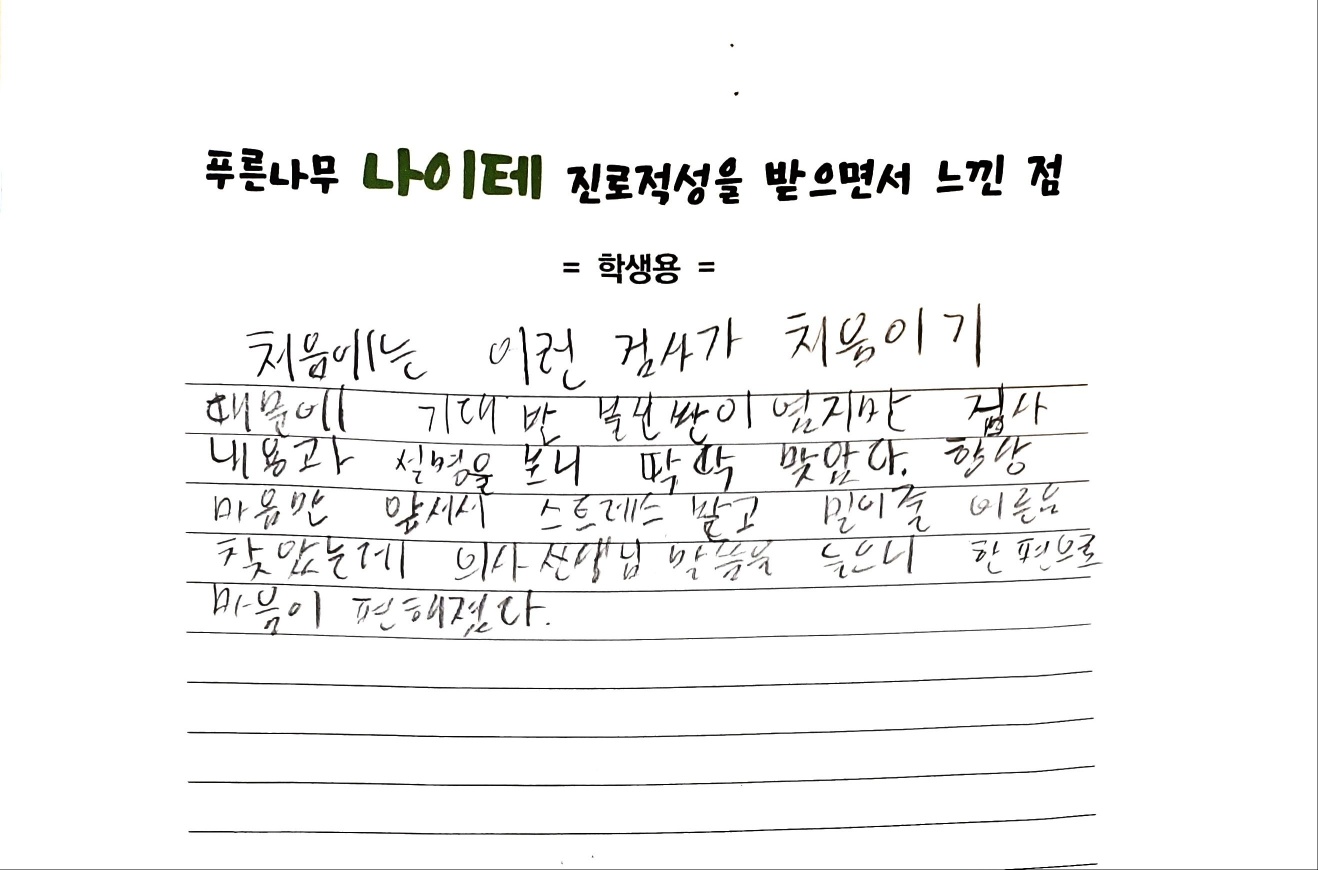 푸른나무 나이테 진로적성을 받으면서 느낀 점
= 학생용 =
처음에는 이런 검사가 처음이기
때문에 기대 반 불신 반이었지만 검사
내용과 설명을 보니 딱딱 맞았다. 항상
마음만 앞서서 스트레스 받고 이름은
찾았는데 의사 선생님 말씀을 들으니 한편으로
마음이 편해졌다.